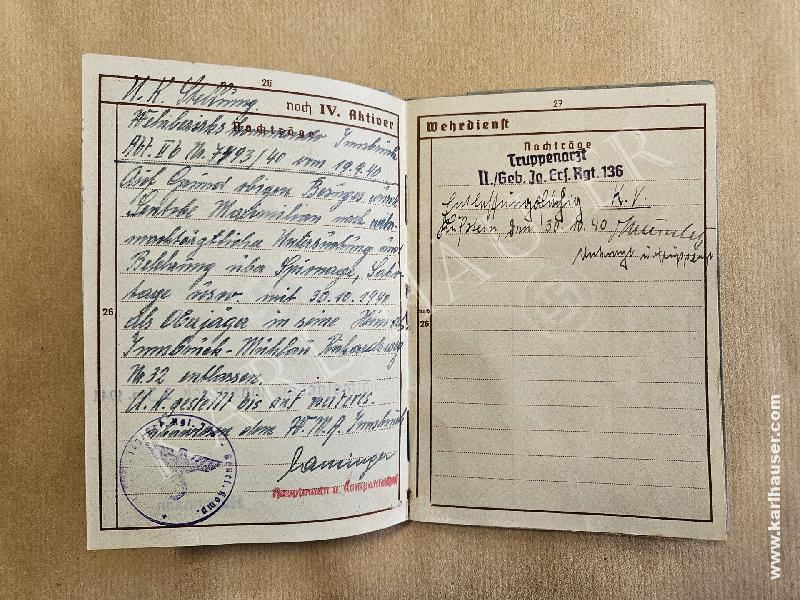 26
noch IV. Aktiver
Nachträge
U. K. Stellung.
Wehrbezirks Kommando Innsbruck
Abt. II b Nr. 7493/40 vom 19.9.40
Auf Grund obigen Bezuges wurde
Maximilian nach wehr-
machtärztlicher Untersuchung und
Belehrung über Spionage, Sabo-
tage usw mit 30.10.1940
als Oberjäger in seine Heimat
Innsbruck-Mühlau
Nr. 32 entlassen.
U. K. gestellt bis auf weiteres
dem W.M.A. Innsbruck
26
Hauptmann u. Kompaniechef
27
Wehrdienst
Nachträge
Truppenarzt
II./Geb. Jg. Ers. Rgt. 136
Entlassungsfähig K.V.
Kufstein, den 30.10.40
noch
26
KARL HAUSER
www.karlhauser.com